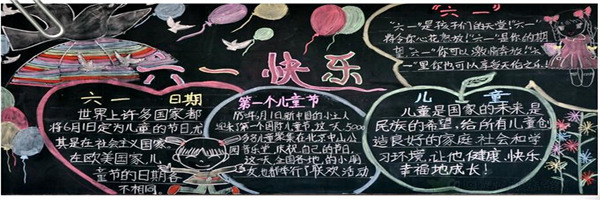 六一快乐
六一 日期
世界上许多国家都
将6月1日定为儿童的节日,尤
其是在社会主义国家。
在欧美国家,儿
童节的日期各
不相同
第一个儿童节
年6月1日新中国的小主人
迎来了第一个国际儿童节,这一天,5000
多名儿童聚集在北京中山公
园音乐堂,庆祝自己的节日。
这一天,全国各地的小朋
友也都举行了联欢活动
"六一"
"六一"是孩子们的天堂!"六一"
将令你心花怒放!"六一"是你的期
望,"六一"你可以激情奔放!"六
一"里你也可以享受天伦之乐!
儿童
儿童是国家的未来,是
民族的希望,给所有儿童创
造良好的家庭.社会和学
习环境,让他健康、快乐、
幸福地成长!